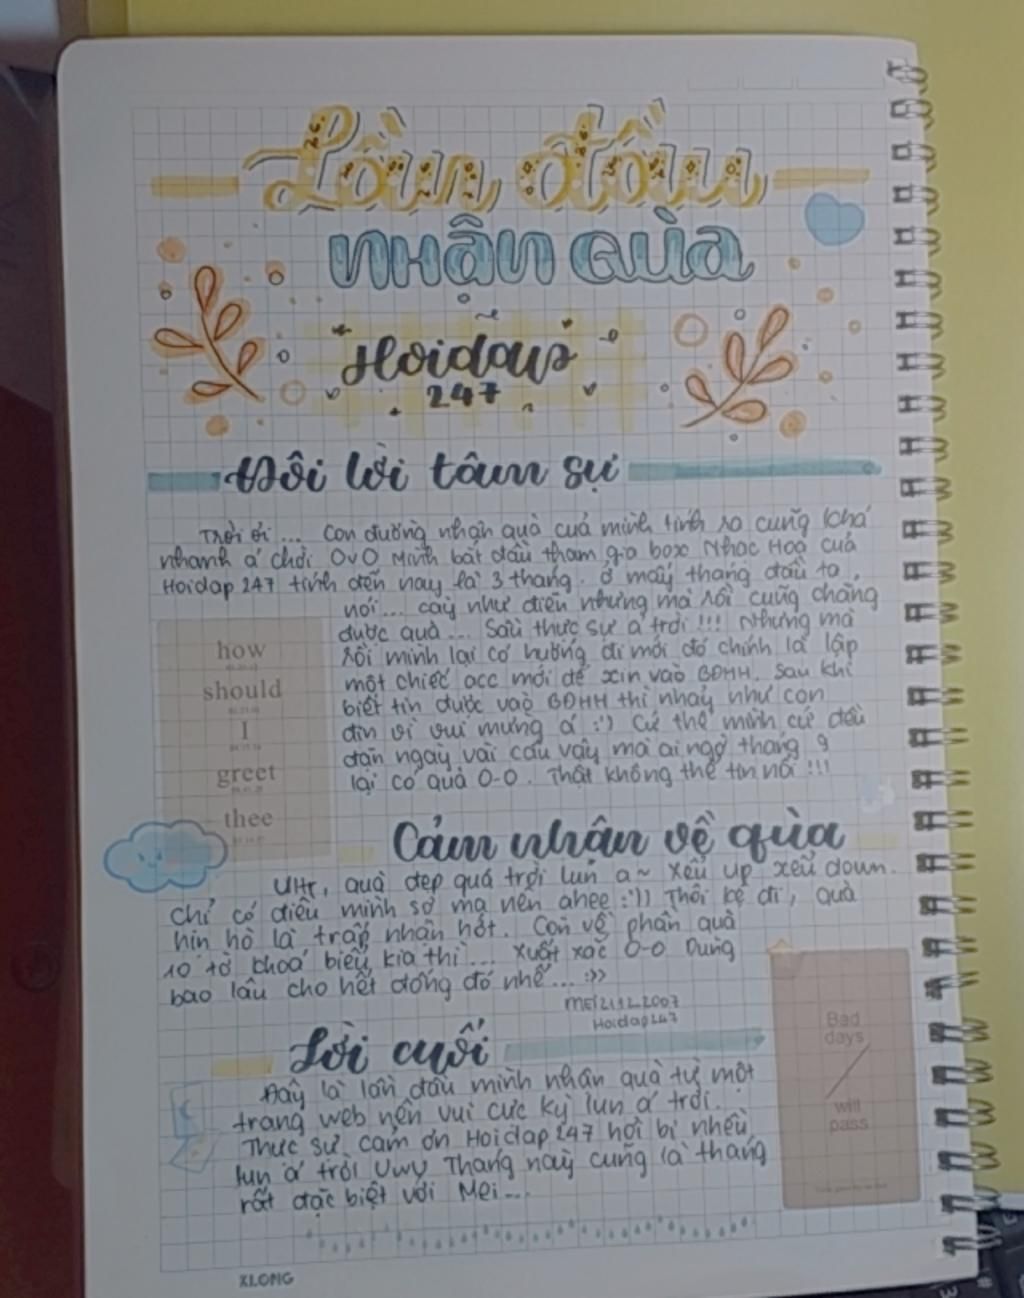 Lần đầu
nhận quà
Hoidap
247
Đôi lời tâm sự
Trời ơi... Con đường nhận quà của mình tính ra cũng khá
nhanh á chời OvO Mình bắt đầu tham gia box Nhạc Hoạ của
Hoidap 247 tính đến nay là 3 tháng. Ở mấy tháng đầu ta
nói... cày như điên nhưng mà rồi cũng chẳng
được quà... Sầu thực sự á trời !!! Nhưng mà
rồi mình lại có hướng đi mới đó chính là lập
một chiếc acc mới để xin vào BĐHH. Sau khi
biết tin được vào BĐHH thì nhảy như con
điên vì vui mừng á :') Cứ thế mình cứ đều
đặn ngày vài câu vậy mà ai ngờ tháng 9
lại có quà 0-0. Thật không thể tin nổi !!!
how
should
I
greet
thee
Cảm nhận về quà
Uhr, quà đẹp quá trời lun a~ xỉu up xỉu down.
chỉ có điều mình sợ ma nên ahee :')) Thôi kệ đi, quà
hịn hò là trân nhận hết. Còn về phần quà
10 tờ khoá biểu kia thì... xuất xắc 0-0 Dùng
bao lâu cho hết đống đó nhể... :>>
MEI2112_2007
Hoidap247
Lời cuối
Đây là lần đầu mình nhận quà từ một
trang web nên vui cực kỳ lun á trời.
Thực sự cảm ơn Hoidap 247 hơi bị nhều
lun á trời Uwu Tháng này cũng là tháng
rất đặc biệt với Mei...
Bad
days
will
pass
XLONG